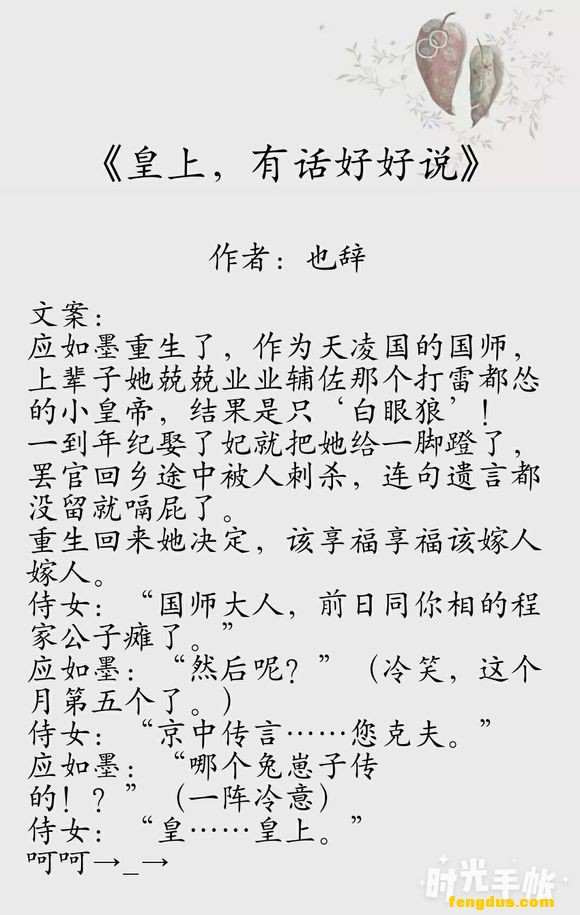 《皇上，有话好好说》
作者：也辞
文案：
应如墨重生了，作为天凌国的国师，
上辈子她兢兢业业辅佐那个打雷都怂
的小皇帝，结果是只‘白眼狼’！
一到年纪娶了妃就把她给一脚蹬了，
罢官回乡途中被人刺杀，连句遗言都
没留就嗝屁了。
重生回来她决定，该享福享福该嫁人
嫁人。
侍女：“国师大人，前日同你相的程
家公子瘫了。”
应如墨：“然后呢？”（冷笑，这个
月第五个了。）
侍女：“京中传言……您克夫。”
应如墨：“哪个兔崽子传
的！？”（一阵冷意）
侍女：“皇……皇上。”
呵呵→_→
时光手帐
fengdus.com